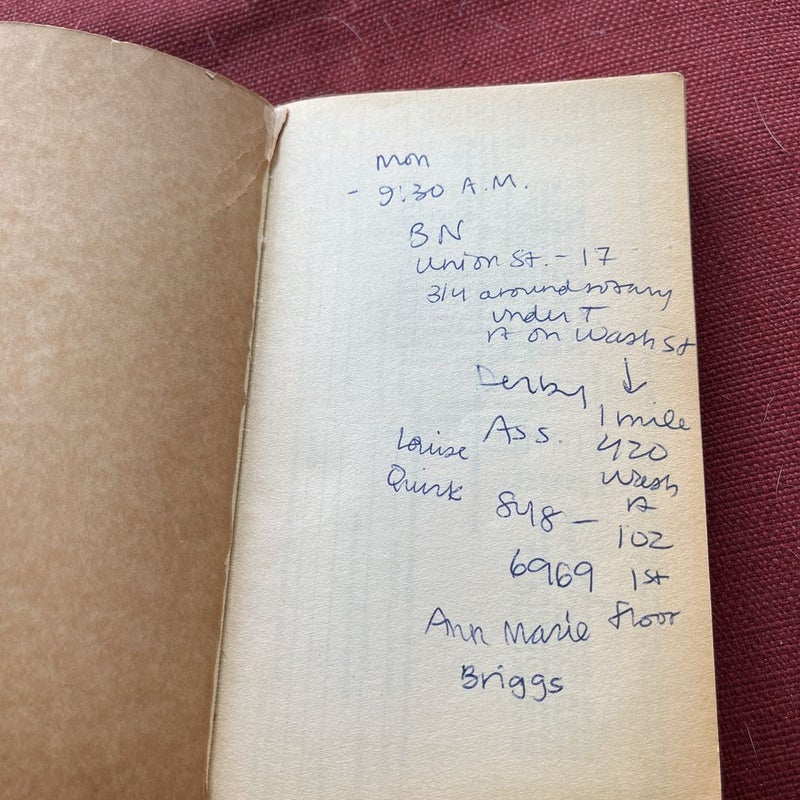 Mon
- 9:30 A.M.
BN
Union St. - 17
3/4 around rotary
under T
rt on Wash St
↓
Derby
1 mile
Ass.
420
Louise
Wash
Quirk
rt
848 -
102
6969
1st
floor
Ann Marie
Briggs